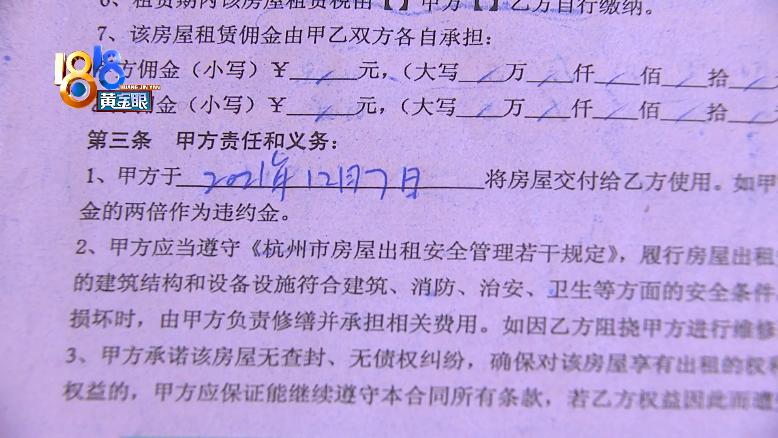 6、租赁期内该房屋租赁税由【 】甲方【 】乙方自行缴纳。
7、该房屋租赁佣金由甲乙双方各自承担：
方佣金（小写）￥ / 元，（大写 / 万 / 仟 / 佰 / 拾
佣金（小写）￥ / 元，（大写 / 万 / 仟 / 佰 / 拾
1818
HUANG JIN YAN
黄金眼
第三条 甲方责任和义务：
1、甲方于2021年12月7日将房屋交付给乙方使用。如甲
金的两倍作为违约金。
2、甲方应当遵守《杭州市房屋出租安全管理若干规定》，履行房屋出租
的建筑结构和设备设施符合建筑、消防、治安、卫生等方面的安全条件
损坏时，由甲方负责修缮并承担相关费用。如因乙方阻挠甲方进行维修
3、甲方承诺该房屋无查封、无债权纠纷，确保对该房屋享有出租的权利
权益的，甲方应保证能继续遵守本合同所有条款，若乙方权益因此而遭